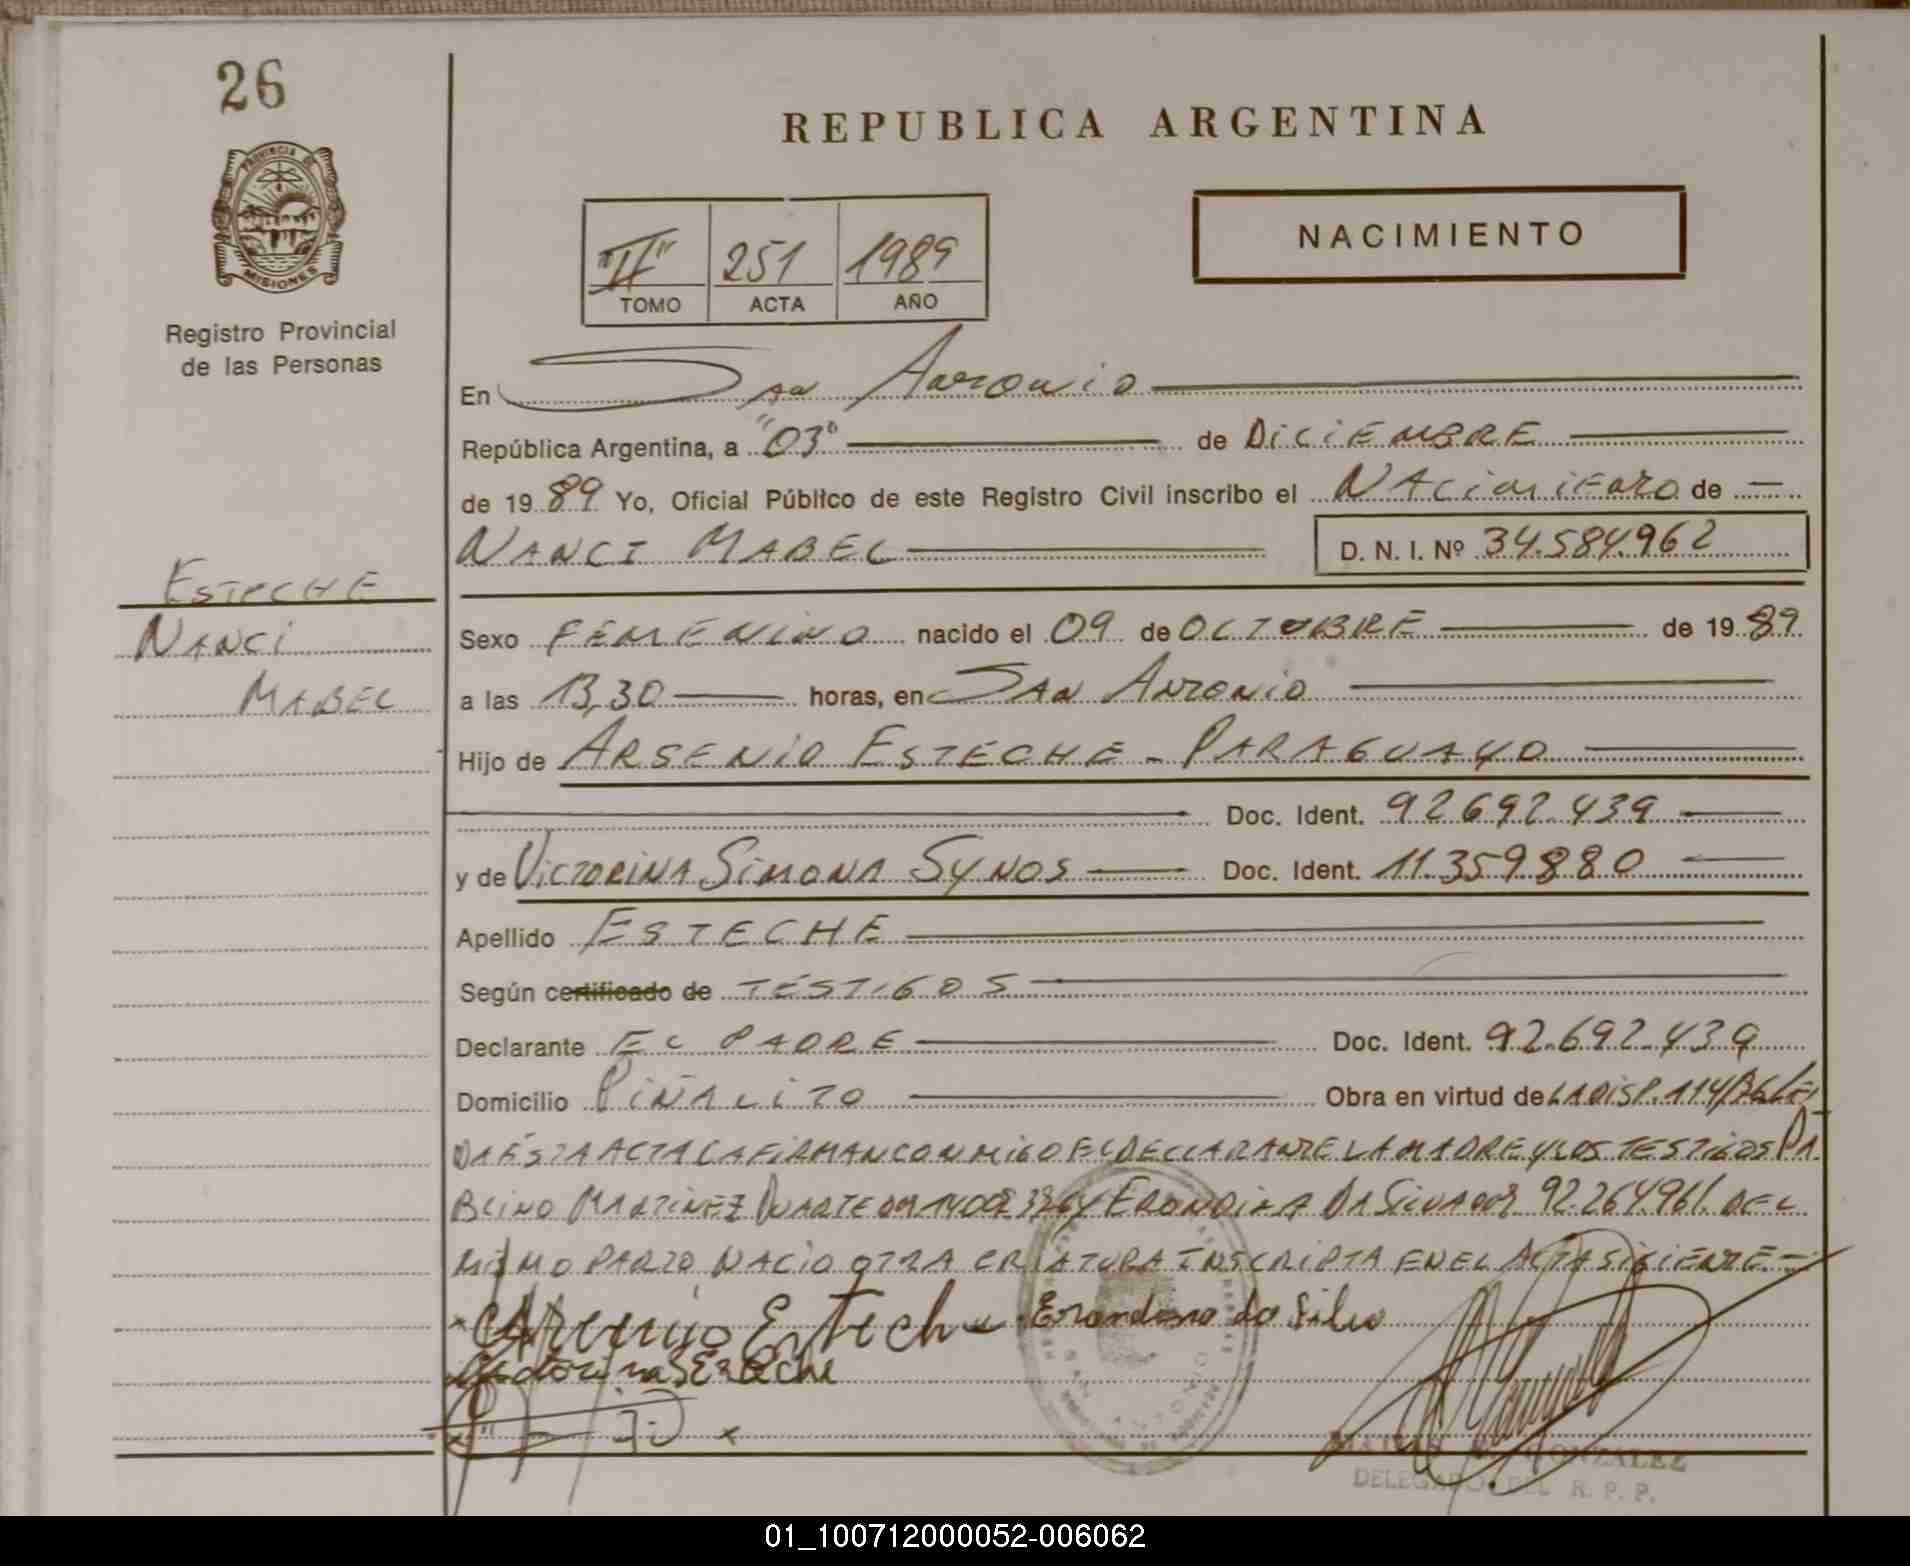 26
REPUBLICA ARGENTINA
PROVINCIA DE
MISIONES
Registro Provincial
de las Personas
NACIMIENTO
"II" 251 1989
TOMO ACTA AÑO
En San Antonio
República Argentina, a "03" de DICIEMBRE
de 19 89 Yo, Oficial Público de este Registro Civil inscribo el NACIMIENTO de
NANCI MABEL D. N. I. Nº 34.584.962
ESTECHE
NANCI
MABEL
Sexo FEMENINO nacido el 09 de OCTUBRE de 19 89
a las 13,30 horas, en SAN ANTONIO
Hijo de ARSENIO ESTECHE - PARAGUAYO
Doc. Ident. 92.692.439
y de VICTORINA SIMONA SYNOS Doc. Ident. 11.359.880
Apellido ESTECHE
Según certificado de TESTIGOS
Declarante EL PADRE Doc. Ident. 92.692.439
Domicilio PIÑALITO Obra en virtud de LA DISP. 114/86 LEI
DA ÉSTA ACTA LA FIRMAN CONMIGO EL DECLARANTE LA MADRE Y LOS TESTIGOS PA
BLINO MARTINEZ DUARTE Y ERONDINA DA SILVA 92.264.961. DEL
MISMO PARTO NACIO OTRA CRIATURA INSCRIPTA EN EL ACTA SIGIENTE.-
Arsenio Esteche Erondina da Silva
Victorina S Esteche
SAN ANTONIO
GONZALEZ
DELEGADO DEL R. P. P.
01_100712000052-006062